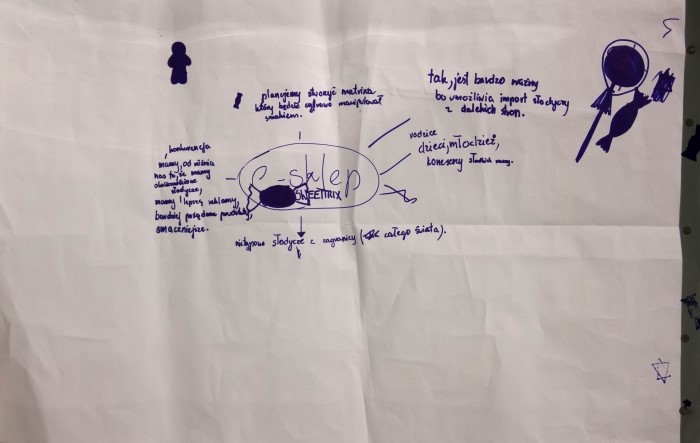 planujemy stworzyć matrixa
który będzie cyfrowo manipulował
smakiem.
tak, jest bardzo ważny
bo umożliwia import słodyczy
z dalekich stron.
rodzice
dzieci, młodzież,
koneserzy słodkich
konkurencja
mamy, od
nas to, że mamy
słodycze,
mamy lepszą reklamy,
bardziej pożądane produkty,
smaczniejsze.
e-sklep
SWEETTRIX
nietypowe słodycze z zagranicy (całego świata).